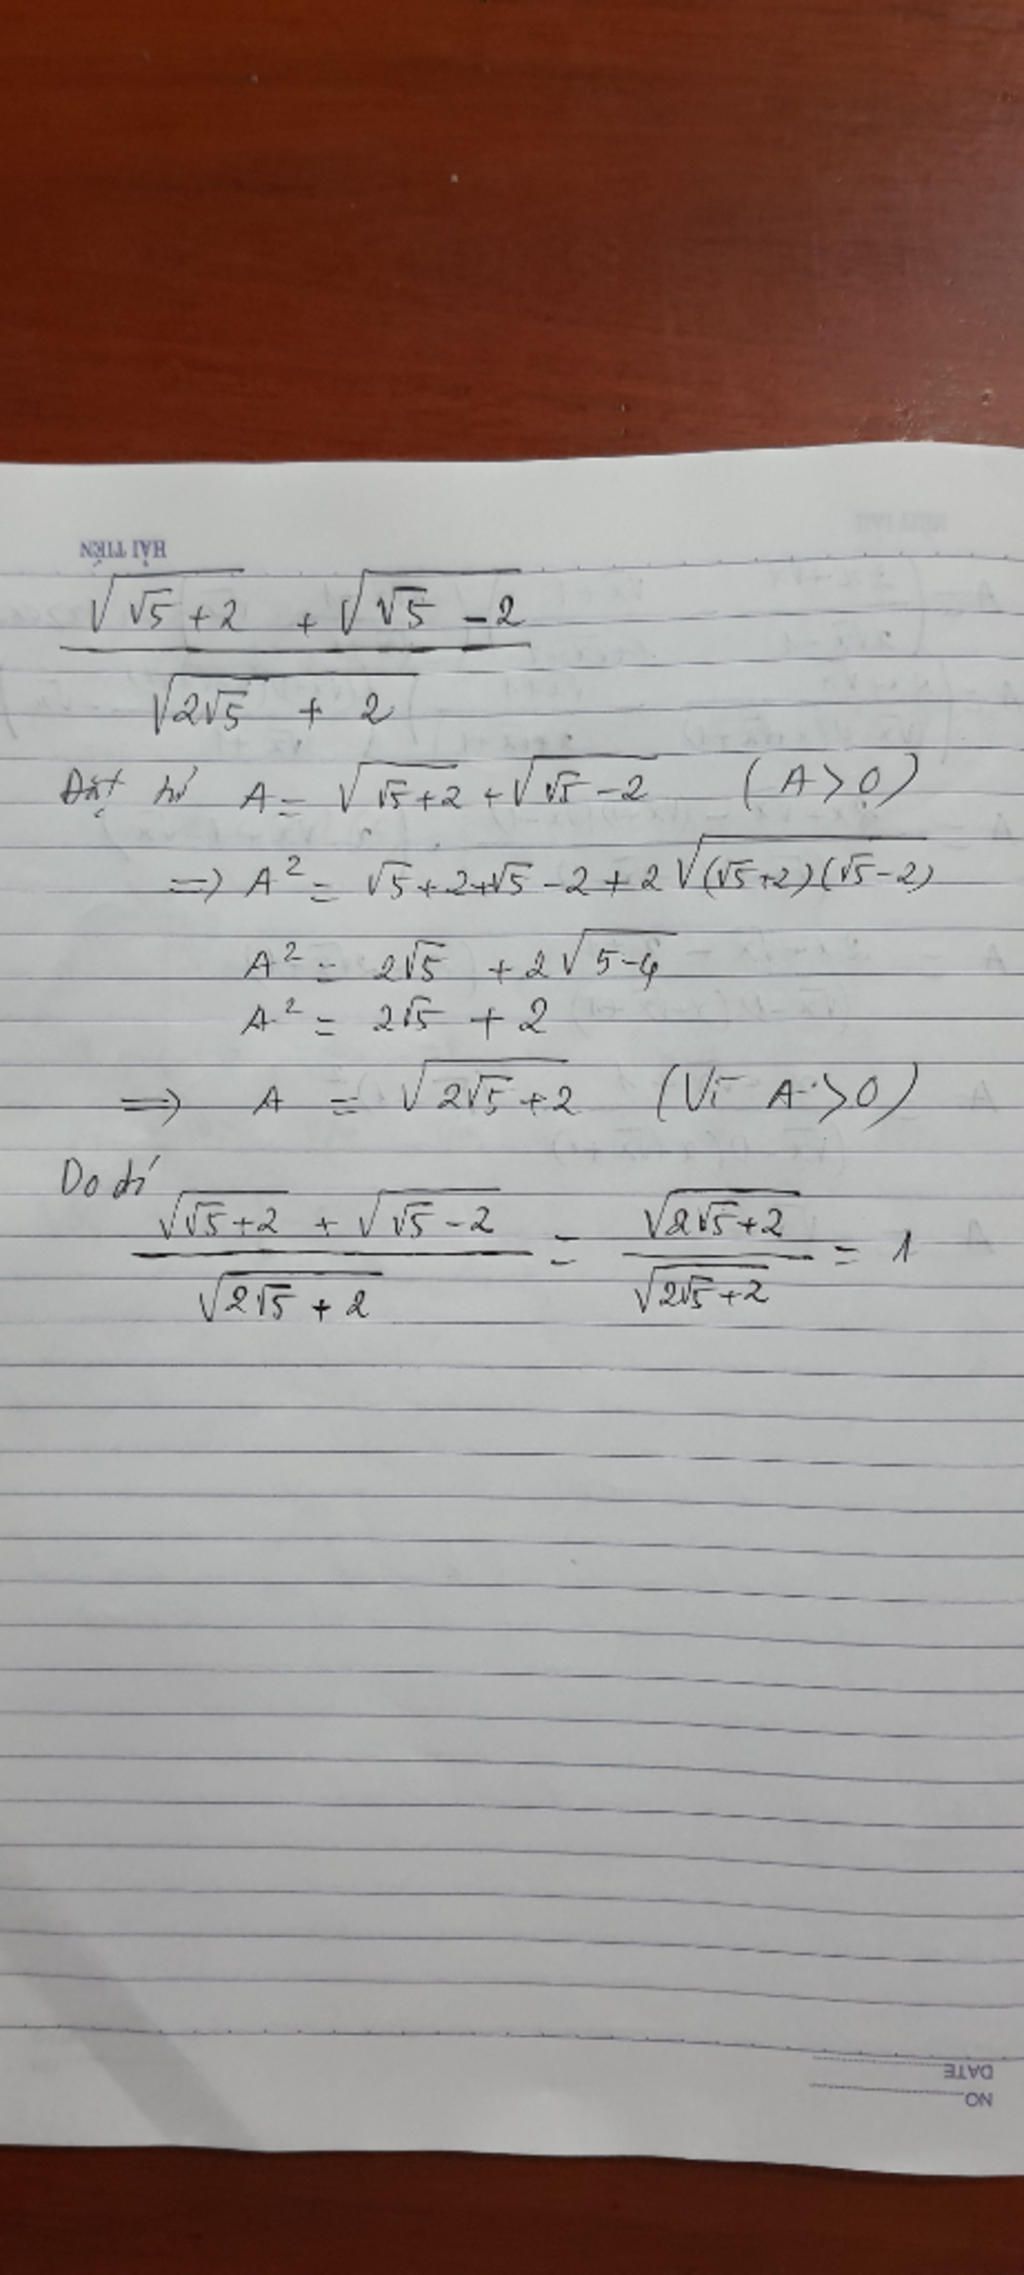 HẢI TIẾN
$\frac{\sqrt{\sqrt{5}+2} + \sqrt{\sqrt{5}-2}}{\sqrt{2\sqrt{5}+2}}$
Đặt tử A = $\sqrt{\sqrt{5}+2} + \sqrt{\sqrt{5}-2}$ (A > 0)
=> A² = √5 + 2 + √5 - 2 + 2$\sqrt{(\sqrt{5}+2)(\sqrt{5}-2)}$
A² = 2√5 + 2$\sqrt{5-4}$
A² = 2√5 + 2
=> A = $\sqrt{2\sqrt{5}+2}$ (Vì A > 0)
Do đó
$\frac{\sqrt{\sqrt{5}+2} + \sqrt{\sqrt{5}-2}}{\sqrt{2\sqrt{5}+2}} = \frac{\sqrt{2\sqrt{5}+2}}{\sqrt{2\sqrt{5}+2}} = 1$
DATE
NO